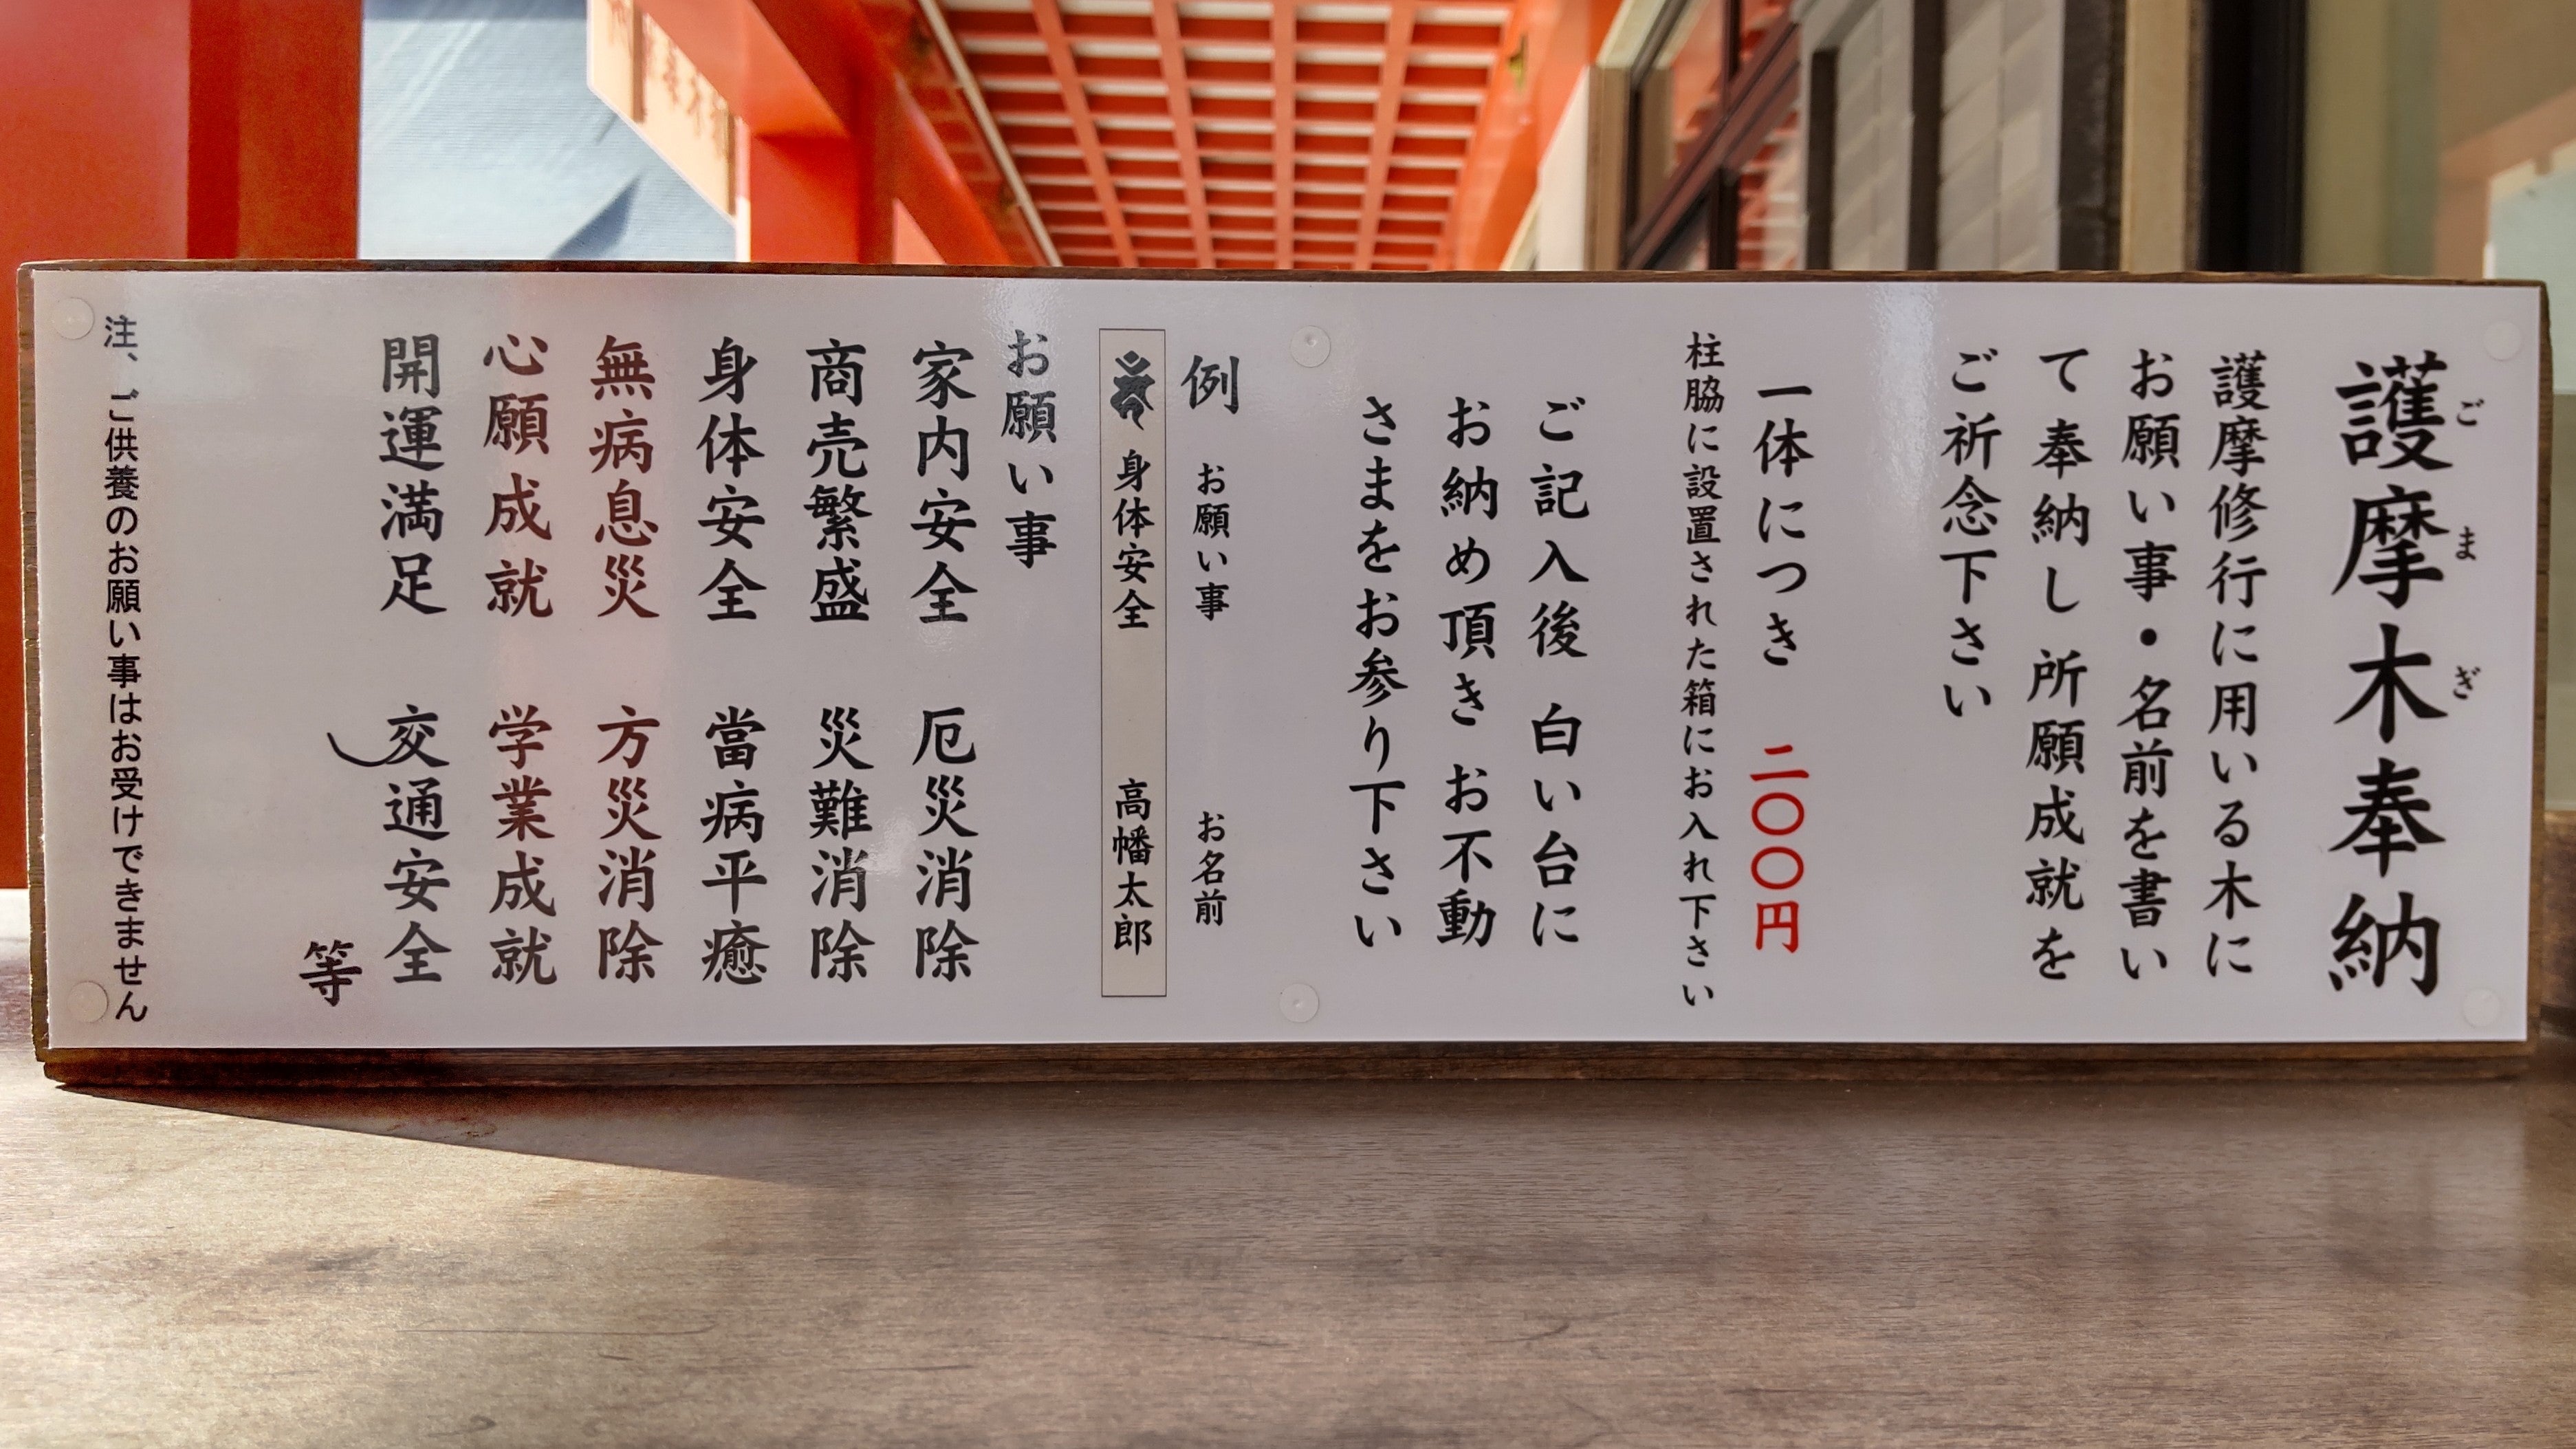 護摩木奉納
ごまぎ
護摩修行に用いる木に
お願い事・名前を書い
て奉納し 所願成就を
ご祈念下さい
一体につき 二〇〇円
柱脇に設置された箱にお入れ下さい
ご記入後 白い台に
お納め頂き お不動
さまをお参り下さい
例 お願い事 お名前
身体安全 高幡太郎
お願い事
家内安全 厄災消除
商売繁盛 災難消除
身体安全 當病平癒
無病息災 方災消除
心願成就 学業成就
開運満足 交通安全
等
注、ご供養のお願い事はお受けできません